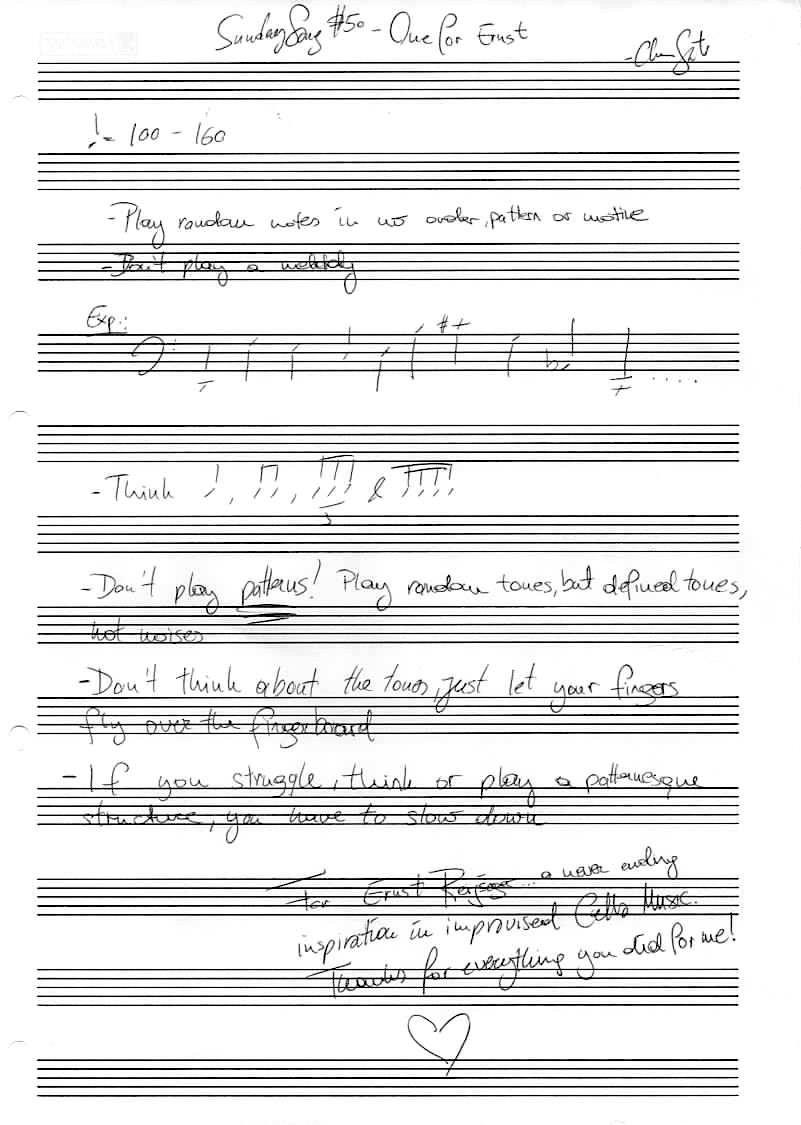 Sunday Song #50 - One for Ernst
♩= 100 - 160
- Play random notes in no order, pattern or motive
- Don't play a melody
Exp.:
- Think ♩, ♫, 3 &
- Don't play patterns! Play random tones, but defined tones,
not noises
- Don't think about the tones, just let your fingers
fly over the fingerboard
- If you struggle, think or play a patternesque
structure, you have to slow down
For Ernst Reijseger... a never ending
inspiration in improvised Cello Music.
Thanks for everything you did for me!